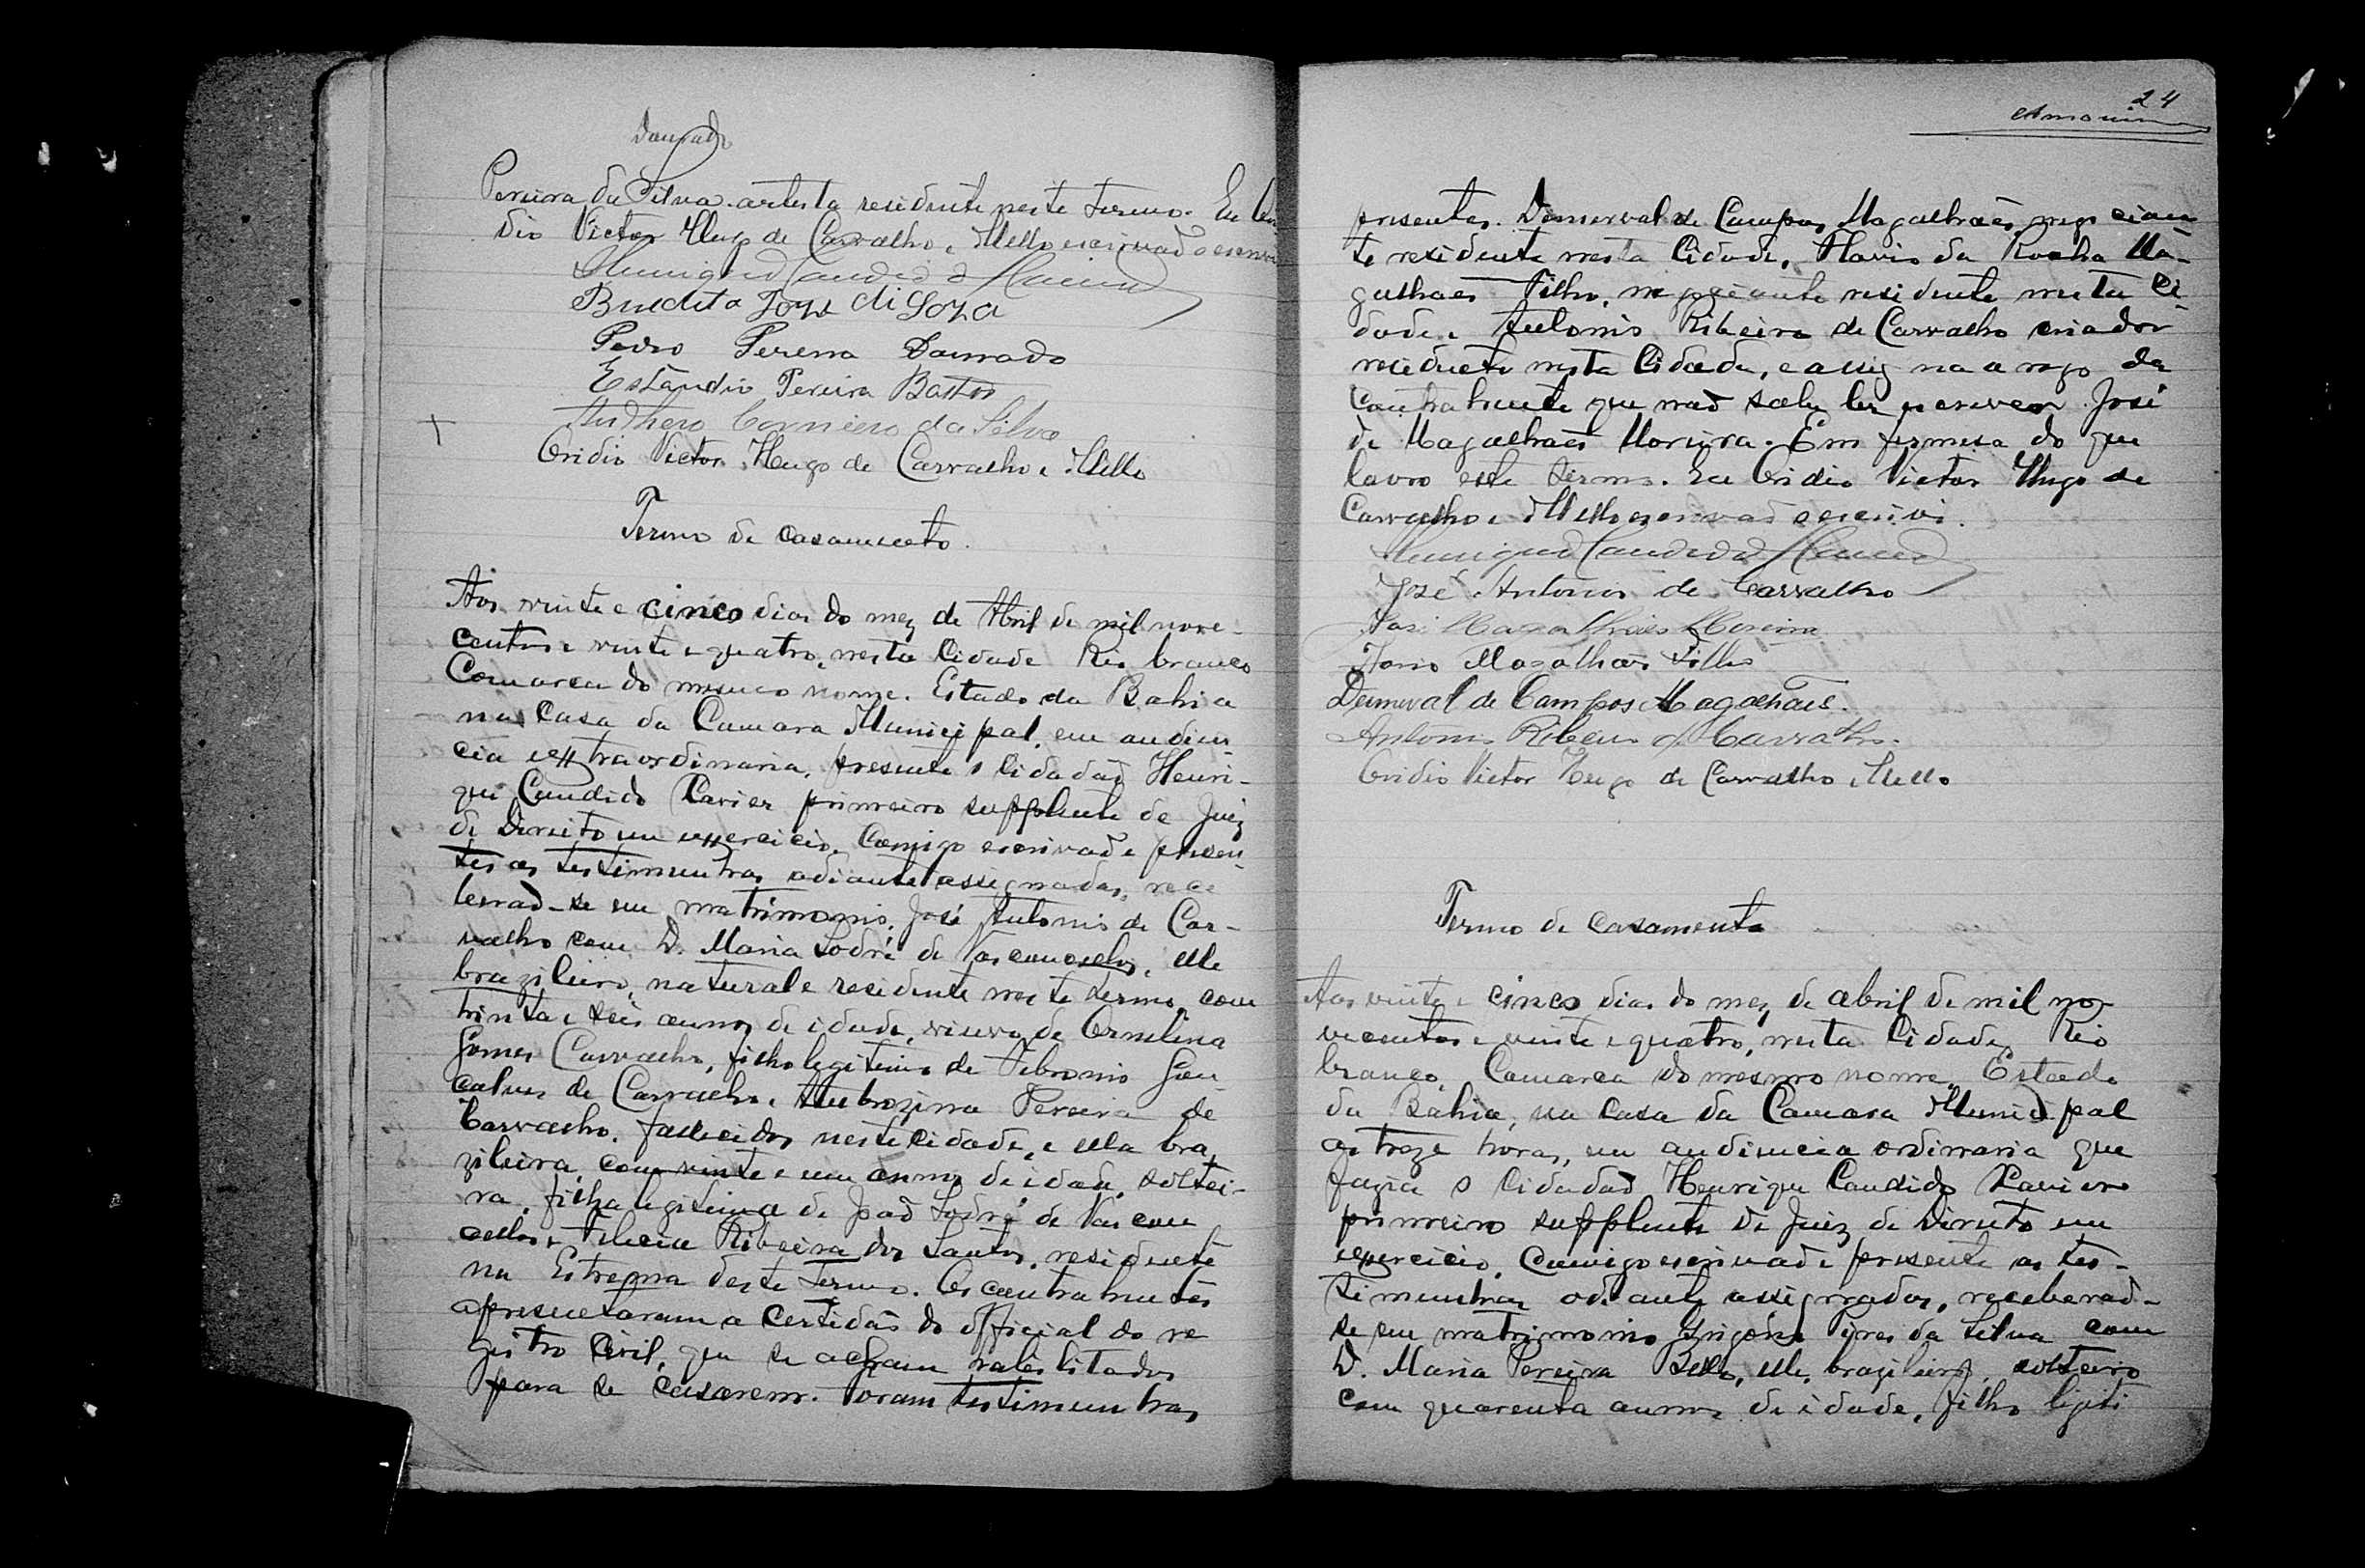 Dourado
Pereira da Silva artista residente neste termo. Eu
dio Victor Hugo de Carvalho e Mello escrivaõ o escrevi
Henrique Candido
Benedito Joze di Soza
Pedro Pereira Dourado
Estandio Pereira Bastos
Anthero Cornieiro da Silva
Ovidio Victor Hugo de Carvalho e Mello
Termo de casamento.
Aos vinte e cinco dias do mez de Abril de mil nove-
centos e vinte e quatro, nesta Cidade Rio branco
Comarca do mesmo nome. Estado da Bahia
na Casa da Camara Municipal, em audien-
cia extraordinaria, presente o Cidadaõ Henri-
que Candido Xavier primeiro supplente de Juiz
de Direito em exercicio, Comigo escrivaõ e presen-
tes as testimunhas adiante assignadas, rece
beraõ-se em matrimonio, José Antonio de Car-
valho com D. Maria Sodré de Vasconcelhos, elle
brazileiro, natural e residente neste termo, com
trinta e seis annos de idade, viuvo de Ornelina
Gomes Carvalho, filho legitimo de Febronio Gon-
calves de Carvalho e Ambrozina Pereira de
Carvalho, fallecidos nesta Cidade, e ella bra
zileira, com vinte e um annos de idade, soltei-
ra, filha legitima de Joaõ Sodré de Vascon
cellos e Felicia Ribeira dos Santos, residente
na Estrema deste termo. Os contrahentes
apresentaram a certidaõ do Official do re
gistro Civil, que se acham habilitados
para se casarem. Foram testimunhas
24
Amorim
presentes. Dermerval de Campos Magalhaẽs, negocian
te residente nesta Cidade, Flavio da Rocha Ma-
galhaes Filho, negociante residente nesta Ci-
dade e Antonio Ribeiro de Carvalho criador
residente nesta Cidade, e assigna a rogo da
Contrahente que naõ sabe ler e escrever José
de Magalhaẽs Moreira. Em firmesa do que
lavro este termo. Eu Ovidio Victor Hugo de
Carvalho e Mello escrivaõ o escrevi.
Henrique Candido
José Antonio de Carvalho
José Magalhães Moreira
Magalhães Filho
Dermeval de Campos Magalhães.
Antonio Ribeiro de Carvalho.
Ovidio Victor Hugo de Carvalho e Mello
Termo de casamento
Aos vinte e cinco dias do mez de abril de mil no-
vecentos e vinte e quatro, nesta Cidade, Rio
branco, Comarca do mesmo nome, Estado
da Bahia, na Casa da Camara Municipal
as treze horas, em audiencia ordinaria que
fazia o Cidadaõ Henrique Candido Xavier
primeiro supplente de Juiz de Direito em
exercicio, Comigo escrivaõ e presente as tes-
timunhas adiante assignadas, receberaõ-
se em matrimonio Grigorio Pires da Silva com
D. Maria Pereira Bello, elle, brazileiro, solteiro
com quarenta annos de idade, filho ligiti